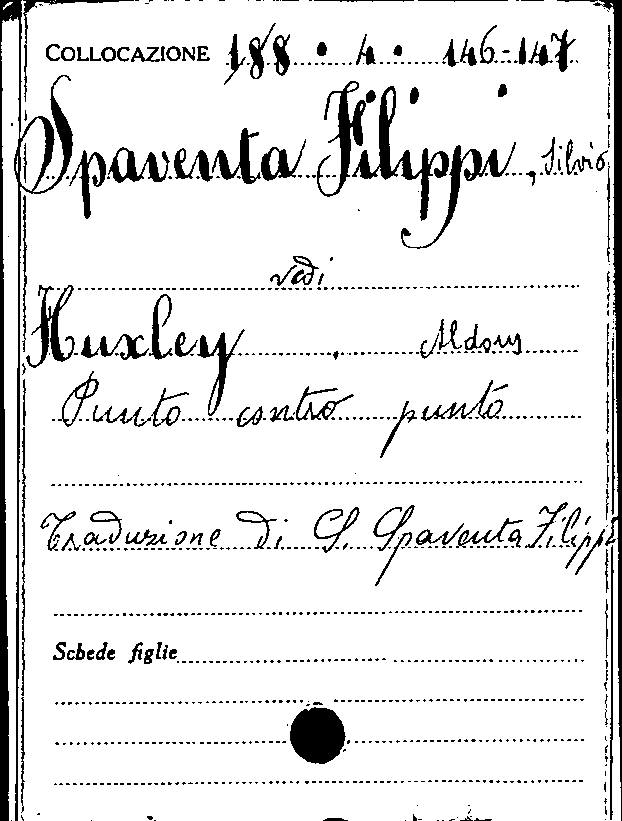 COLLOCAZIONE 188 • 4 • 146-147
Spaventa Filippi, Silvio
vedi
Huxley, Aldous
Punto contro punto
Traduzione di S. Spaventa Filippi
Schede figlie